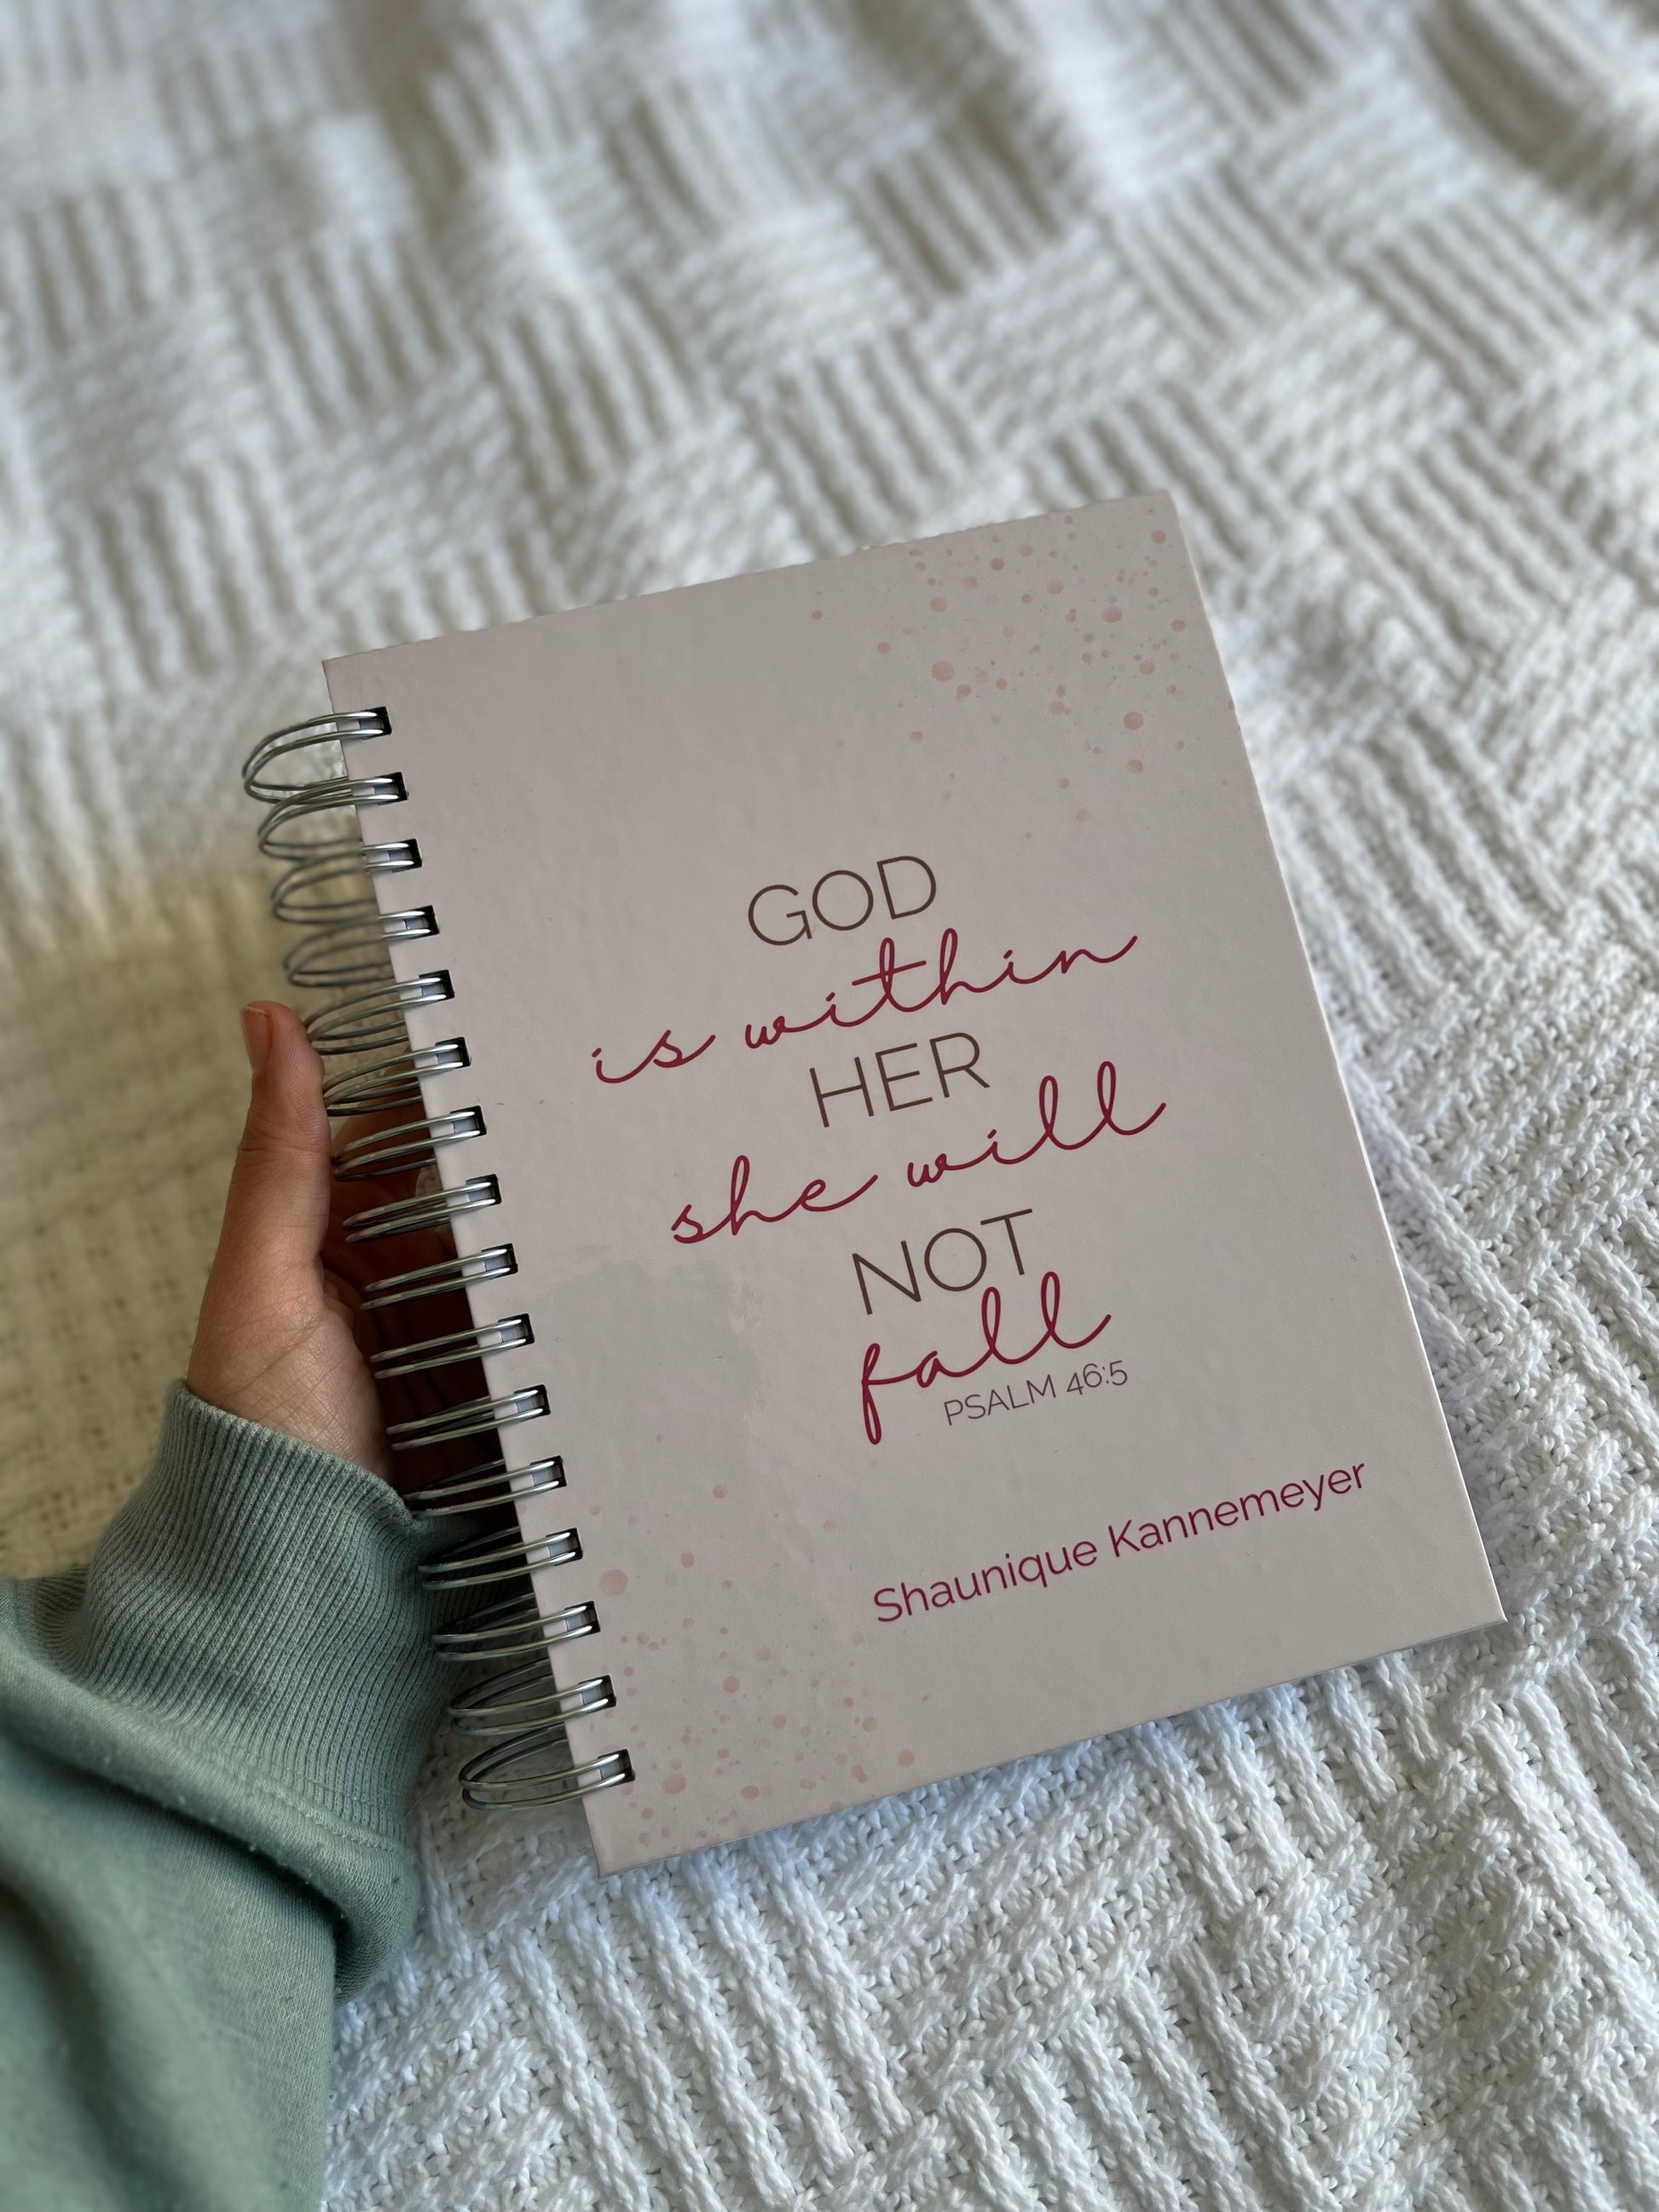 GOD
is within
HER
she will
NOT
fall
PSALM 46:5
Shaunique Kannemeyer